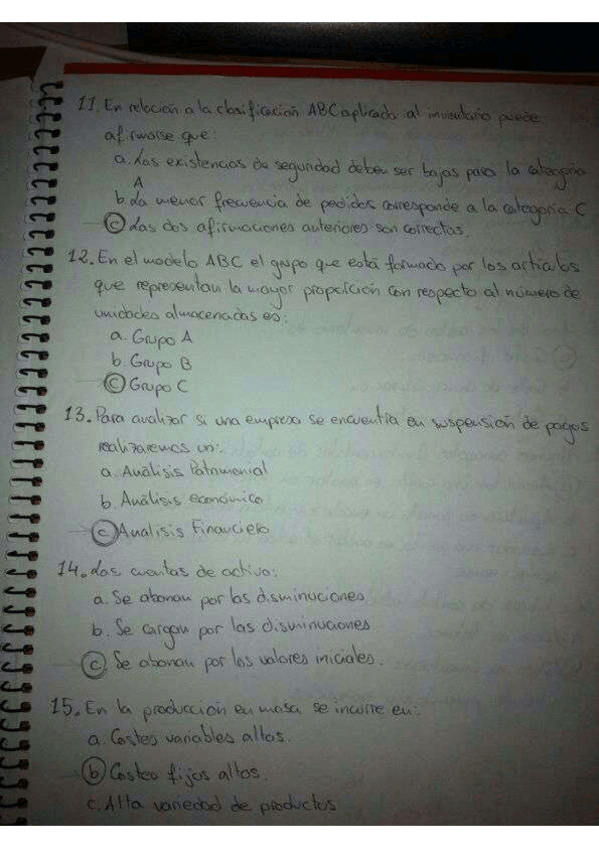 11. En relación a la clasificación ABC aplicada al inventario puede
afirmarse que:
a. Las existencias de seguridad deben ser bajas para la categoria
A
b. La menor frecuencia de pedidos corresponde a la categoria C
c Las dos afirmaciones anteriores son correctas.
12. En el modelo ABC el grupo que está formado por los artículos
que representan la mayor proporción con respecto al número de
unidades almacenadas es:
a. Grupo A
b. Grupo B
c Grupo C
13. Para analizar si una empresa se encuentra en suspensión de pagos
realizaremos un:
a. Análisis Patrimonial
b. Análisis económico
c Analisis Financiero
14. Las cuentas de activo:
a. Se abonan por las disminuciones
b. Se cargan por las disminuciones
c Se abonan por los valores iniciales.
15. En la produccion en masa se incurre en:
a. Costes variables altos.
b Costes fijos altos.
c. Alta variedad de productos